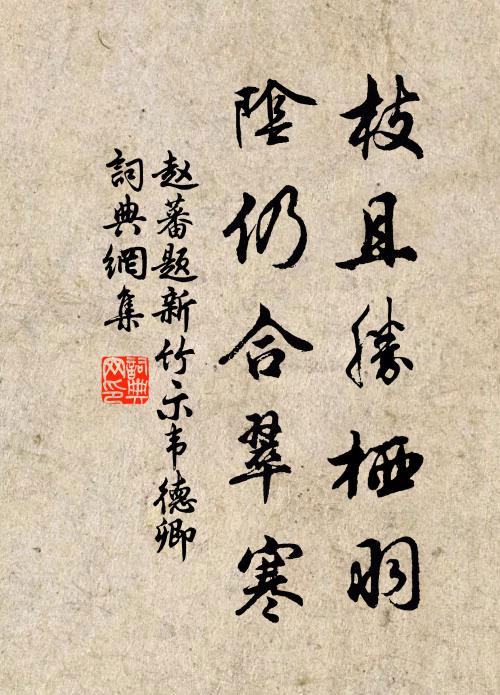 枝且勝栖羽
陰仍合翠寒
赵蕃题新竹示韦德卿
詞典網集
詞典網印